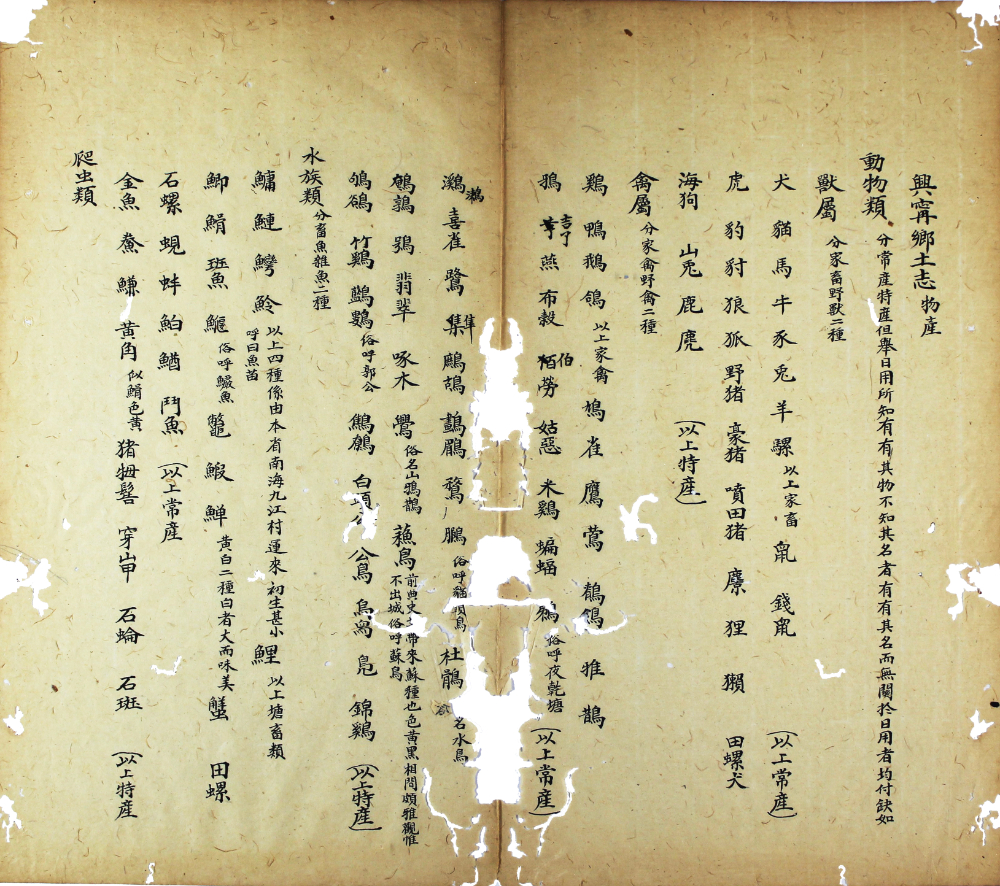 興甯鄉土志 物產
動物類 分常產特產但舉日用所知有有其物不知其名者有有其名而無關於日用者均付缺如
獸屬 分家畜野獸二種
犬 貓 馬 牛 豕 兎 羊 騾 以上家畜 䑕 錢䑕 (以上常產)
虎 豹 豺 狼 狐 野猪 豪猪 噴田猪 麖 狸 獺 田螺犬
海狗 山兎 鹿 麂 (以上特產)
禽屬 分家禽野禽二種
鷄 鴨 鵝 鴿 以上家禽 鳩 雀 鷹 鶯 鷓鴣 雅 鵲
鴉 吉了 燕 布穀 伯勞 姑惡 米鷄 蝙蝠 俗呼夜乾塘 (以上常產)
喜雀 鷺 隼 鵬 俗呼貓頭鳥 杜鵑 名水鳥
鵪鶉 鴞 翡翠 啄木 鷽 俗名山鴉鵲 蘓鳥 前典史 帶來蘇種也色黃黑相間頗雅觀惟不出城俗呼蘇鳥
竹鷄 俗呼郭公 白頭 鳧 錦鷄 (以上特產)
水族類 分畜魚雜魚二種
鱅 鰱 鯇 鯪 以上四種係由本省南海九江村運來初生甚小呼曰魚苗 鯉 以上塘畜類
鯽 鯝 斑魚 俗呼鱖魚 鼈 蝦 鱓 黃白二種白者大而味美 蟹 田螺
石螺 蜆 蚌 鮊 鰌 鬥魚 (以上常產)
金魚 鯗 鰜 黃角 似鯝色黃 猪姆髻 穿山甲 石蜦 石斑 (以上特產)
爬虫類